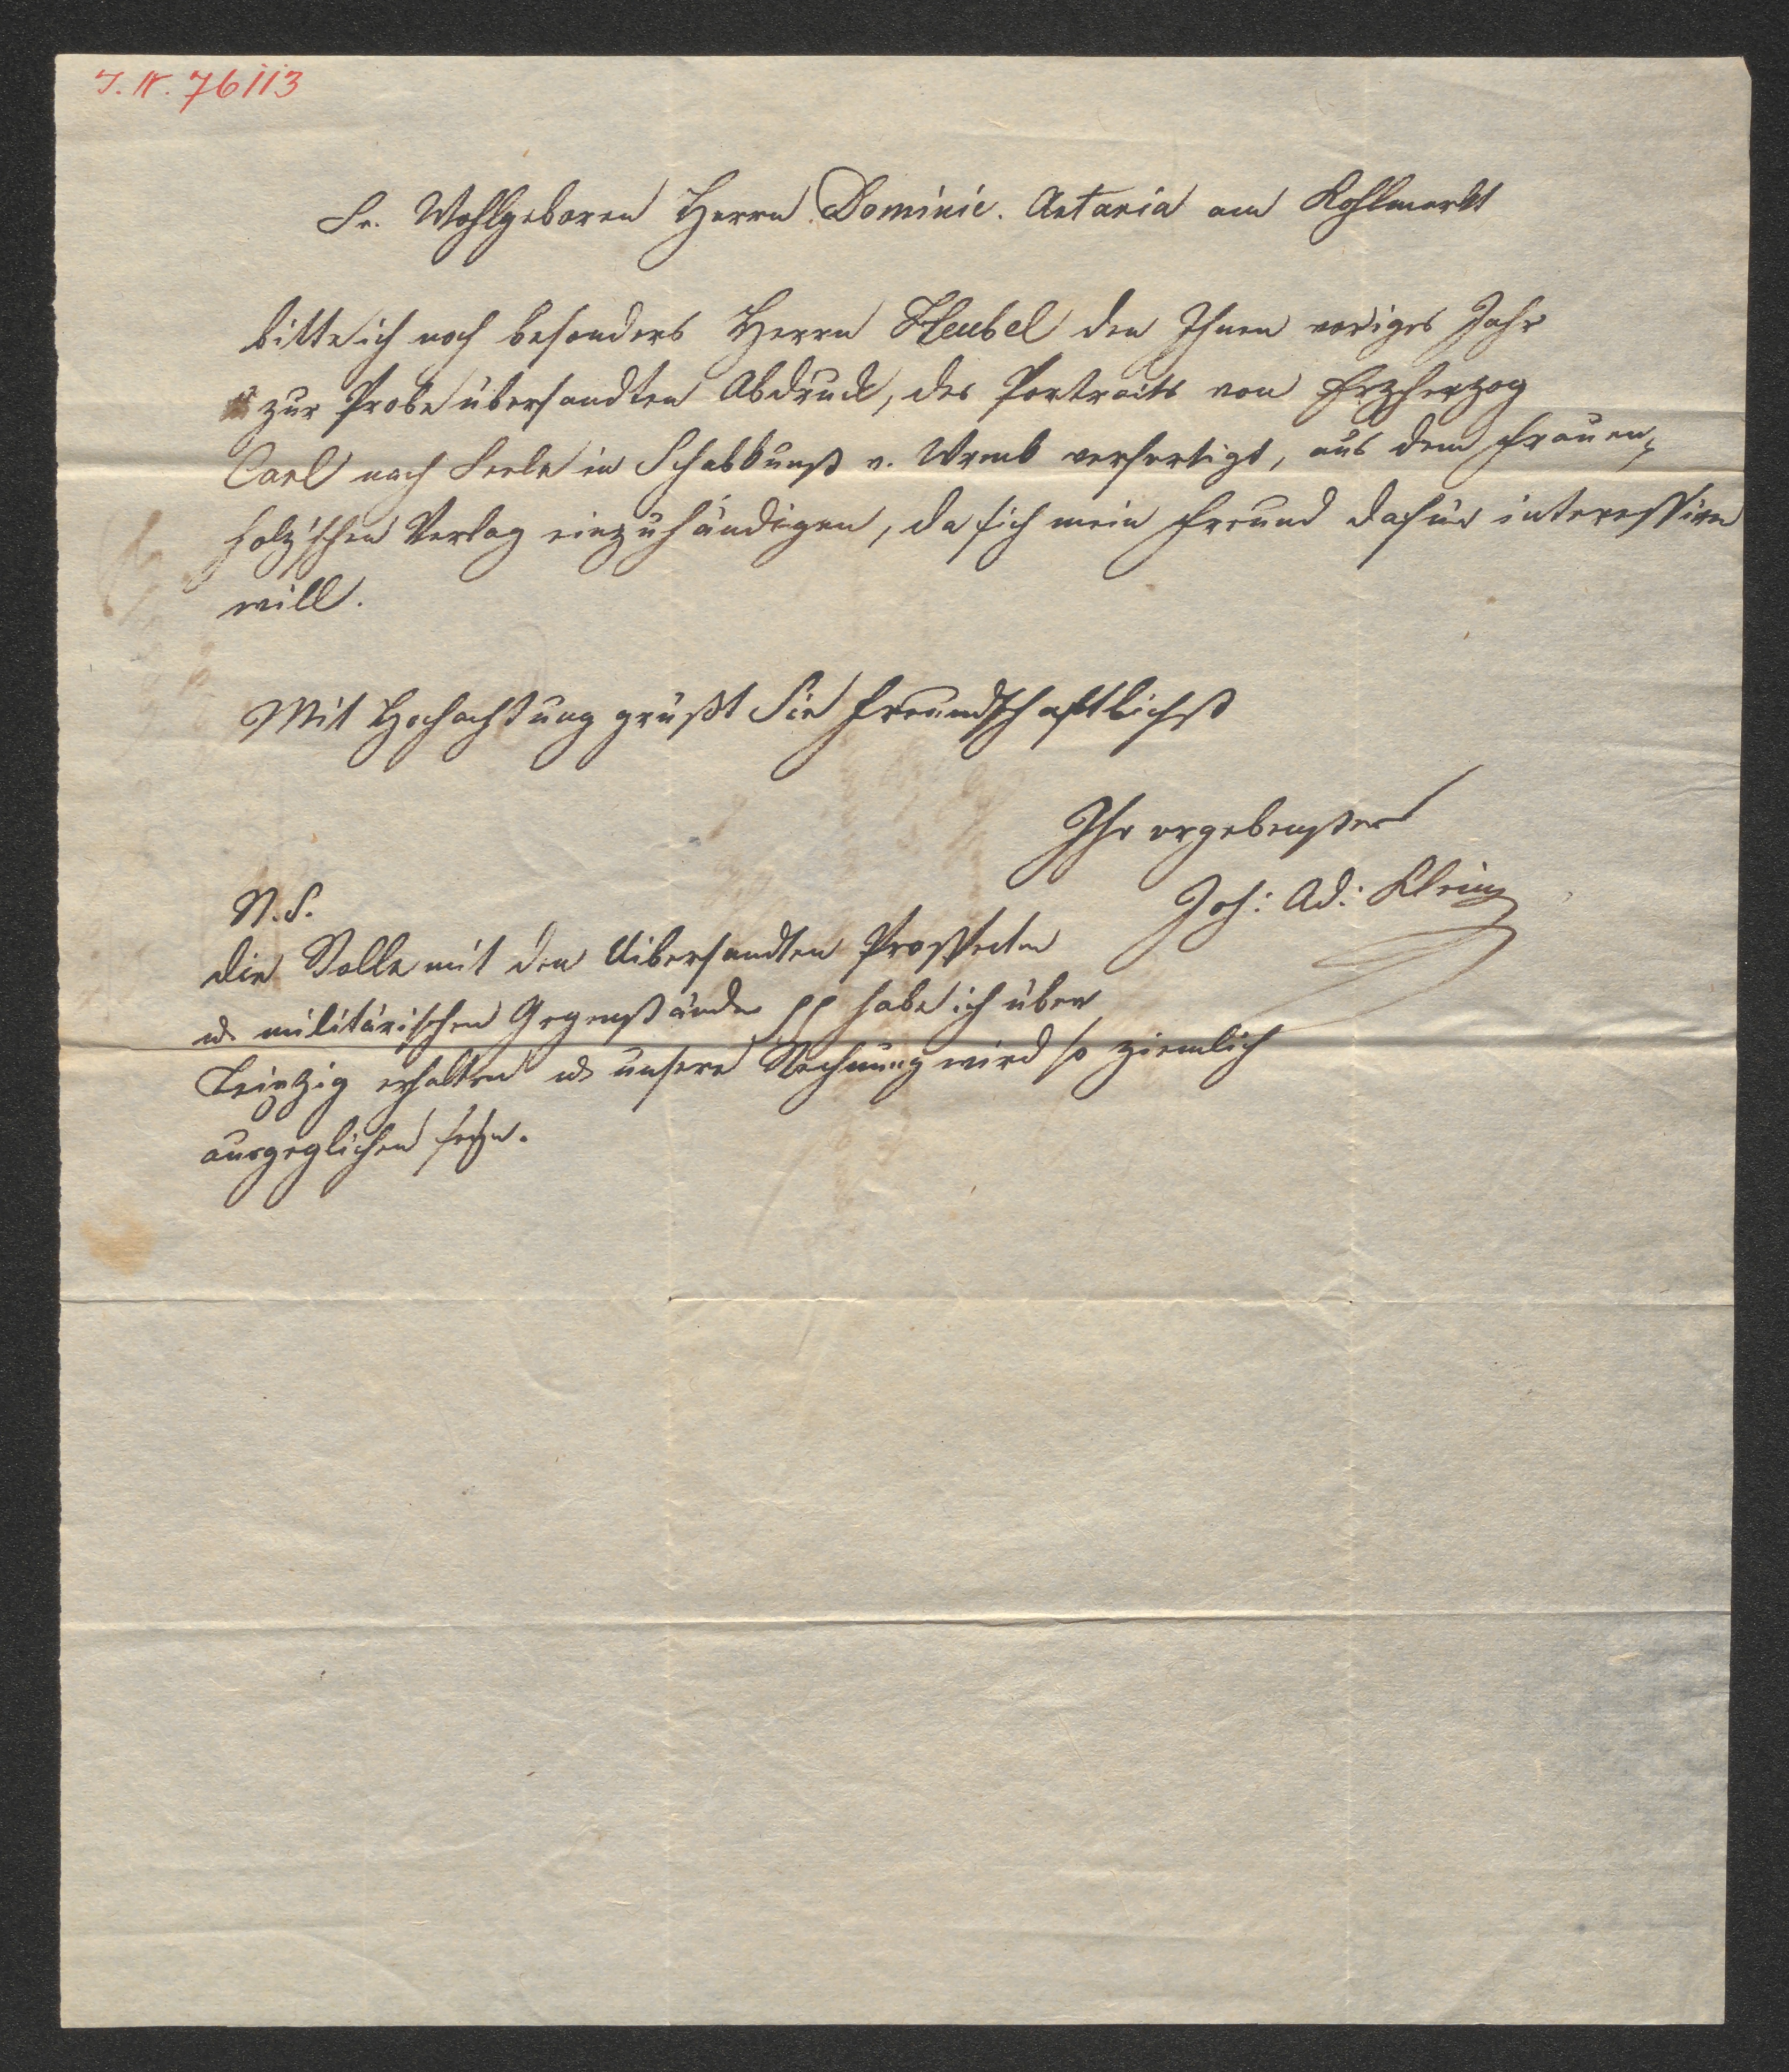 I. N. 76113
Sr. Wohlgeboren Herrn Dominic. Artaria am Kohlmarkt
bitte ich noch besonders Herrn Heubel den Ihnen voriges Jahr
zur Probe übersandten Abdruck, des Portraits von Erzherzog
Carl nach Seele in Schabkunst v. Wrenk verfertigt, aus dem Frauen-
holz'schen Verlag einzuhändigen, da sich mein Freund dafür interessiren
will.
Mit Hochachtung grüßt Sie freundschaftlichst
Ihr ergebenster
Joh: Ad: Klein
N.S.
die Rolle mit den Uibersandten Prospecten
u. militärischen Gegenstände pp habe ich über
Leipzig erhalten u. unsere Rechnung wird so ziemlich
ausgeglichen seyn.